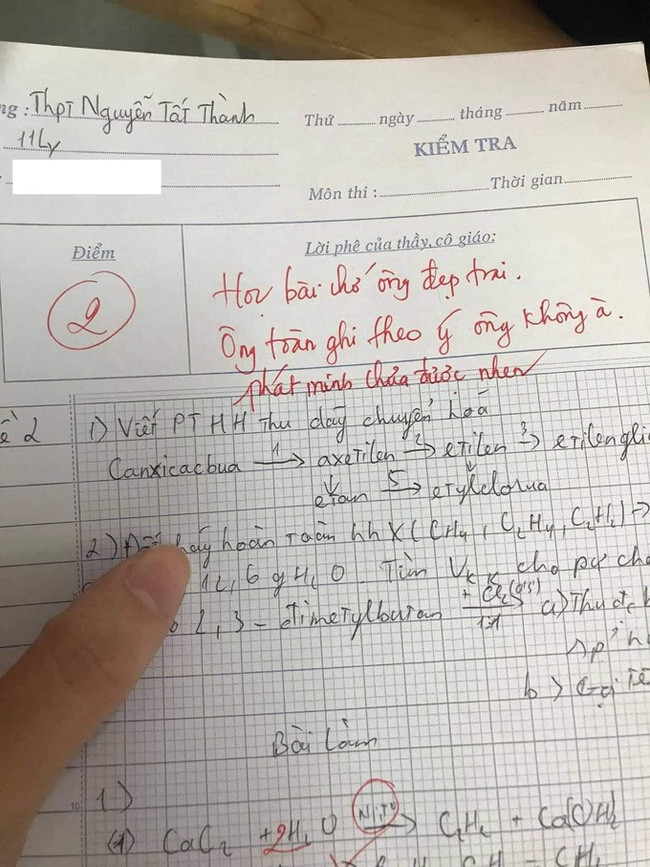 ng : Thpt Nguyễn Tất Thành
11Ly
Thứ ngày tháng năm
KIỂM TRA
Môn thi : Thời gian
Điểm
2
Lời phê của thầy, cô giáo:
Học bài chớ ông đẹp trai.
Ông toàn ghi theo ý ông không à.
phát minh chưa được nhen
1) Viết PTHH thu dãy chuyển hoá
Canxicacbua 1→ axetilen 2→ etilen 3→ etilengli
↓ ↓
etan 5→ etylclorua
2) hãy hoàn toàn hh X (CH4, C2H4, C2H2) →
12,6 g H2O. Tìm V cho pư
2,3 - đimetylbutan + Cl2 (a's) 1:1 a) Thu đc
b) Gọi tê
Bài làm
1)
(1) CaC2 + 2H2O → C2H2 + Ca(OH)2